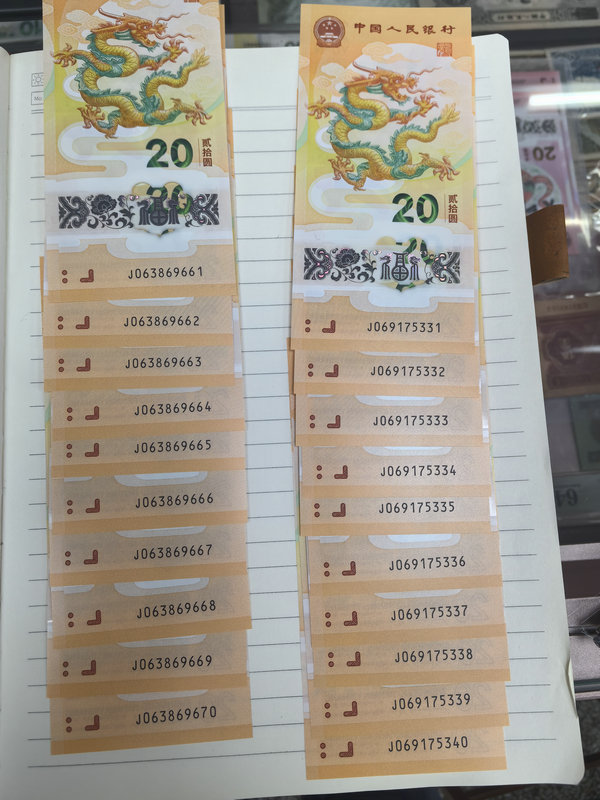 20
贰拾圆
福
J063869661
J063869662
J063869663
J063869664
J063869665
J063869666
J063869667
J063869668
J063869669
J063869670
中国人民银行
20
贰拾圆
福
J069175331
J069175332
J069175333
J069175334
J069175335
J069175336
J069175337
J069175338
J069175339
J069175340
Mo
20
64